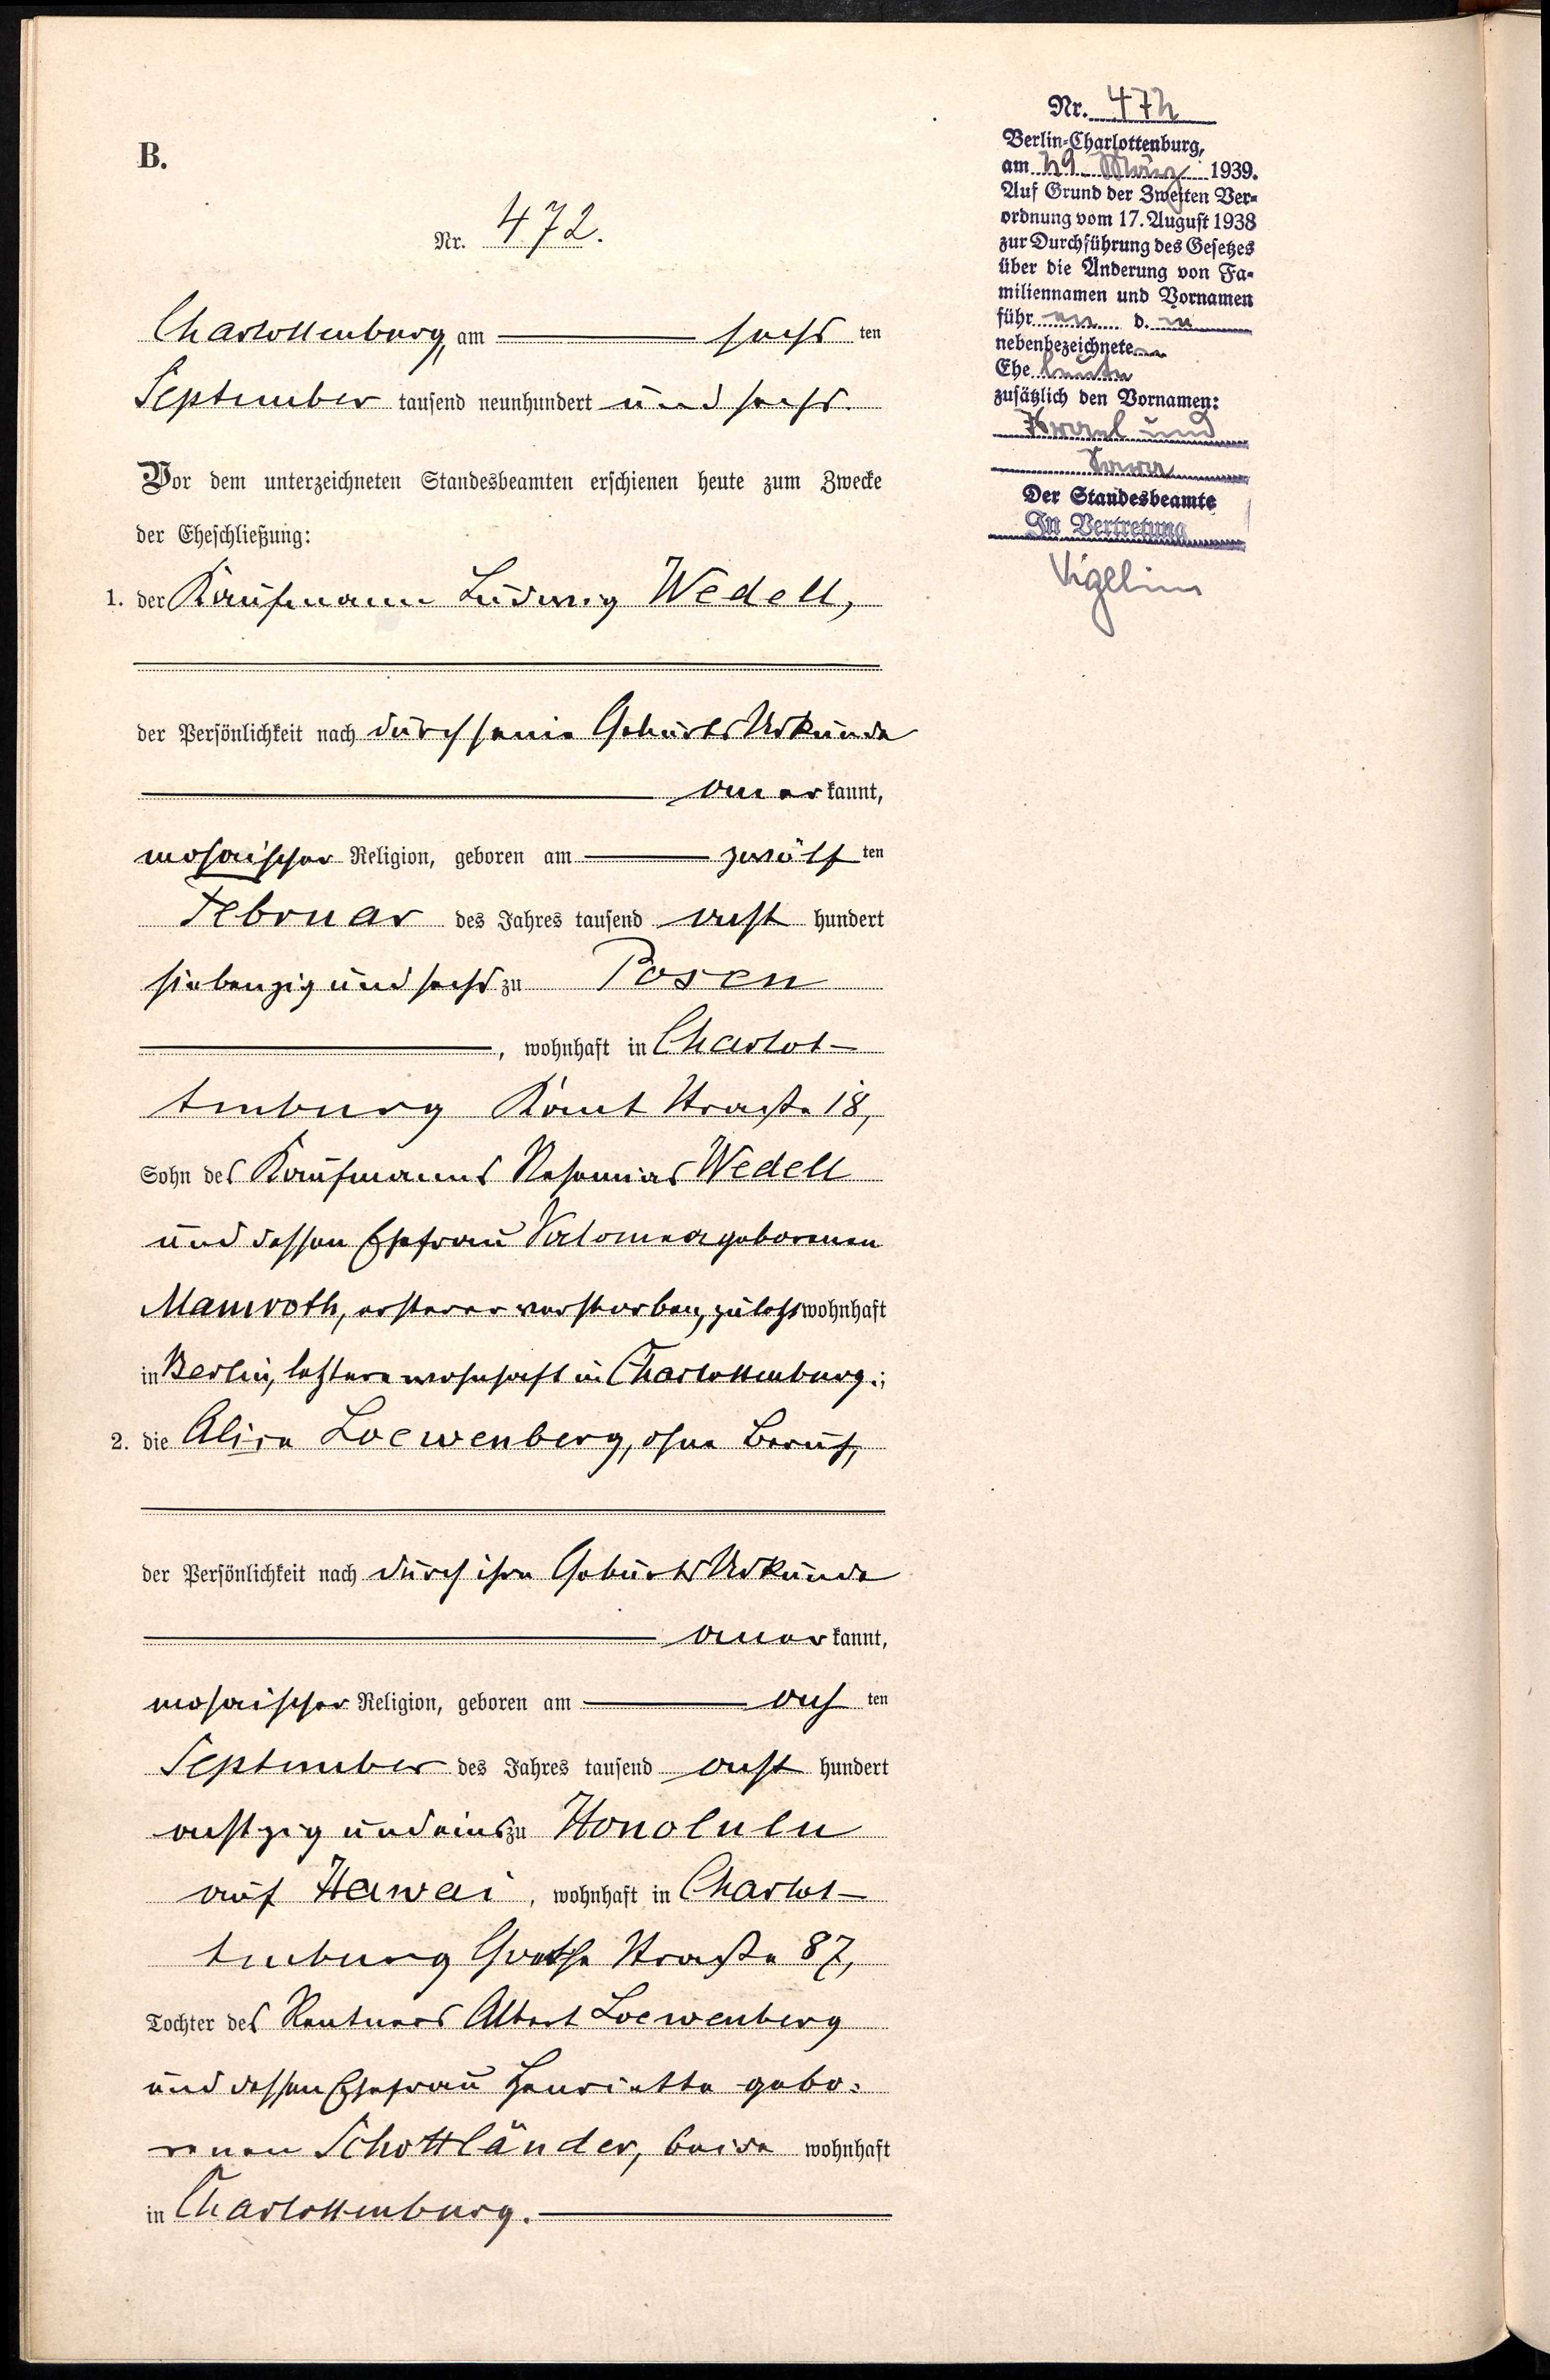 B.
Nr. 472.
Charlottenburg, am sechsten
September tausend neunhundert und sechs.
Vor dem unterzeichneten Standesbeamten erschienen heute zum Zwecke
der Eheschließung:
1. der Kaufmann Ludwig Wedell,
der Persönlichkeit nach durch seine Geburts Urkunde
anerkannt,
mosaischer Religion, geboren am zwölften
Februar des Jahres tausend achthundert
siebenzig und sechs zu Posen
, wohnhaft in Charlot-
tenburg Kant Straße 18,
Sohn des Kaufmanns Nehemias Wedell
und dessen Ehefrau Salomea geborenen
Mamroth, ersterer verstorben, zuletzt wohnhaft
in Berlin, letztere wohnhaft in Charlottenburg;
2. die Alice Loewenberg, ohne Beruf,
der Persönlichkeit nach durch ihre Geburts Urkunde
anerkannt,
mosaischer Religion, geboren am achten
September des Jahres tausend achthundert
achtzig und eins zu Honolulu
auf Hawai, wohnhaft in Charlot-
tenburg Goethe Straße 87,
Tochter des Rentners Albert Loewenberg
und dessen Ehefrau Henriette gebo-
renen Schottländer, beide wohnhaft
in Charlottenburg.
Nr. 472
Berlin-Charlottenburg,
am 29. März 1939.
Auf Grund der Zweiten Ver-
ordnung vom 17. August 1938
zur Durchführung des Gesetzes
über die Änderung von Fa-
miliennamen und Vornamen
führen d. ie
nebenbezeichneten
Eheleute
zusätzlich den Vornamen:
Israel und
Sara
Der Standesbeamte
In Vertretung